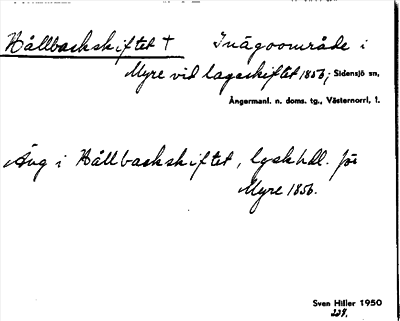 Hällbackskiftet † Inägoområde i
Myre vid lagaskiftet 1856; Sidensjö sn,
Ångermanl. n. doms. tg., Västernorrl, l.
Äng i Hällbackskiftet, lgskhdl. för
Myre 1856.
Sven Hiller 1950
229.